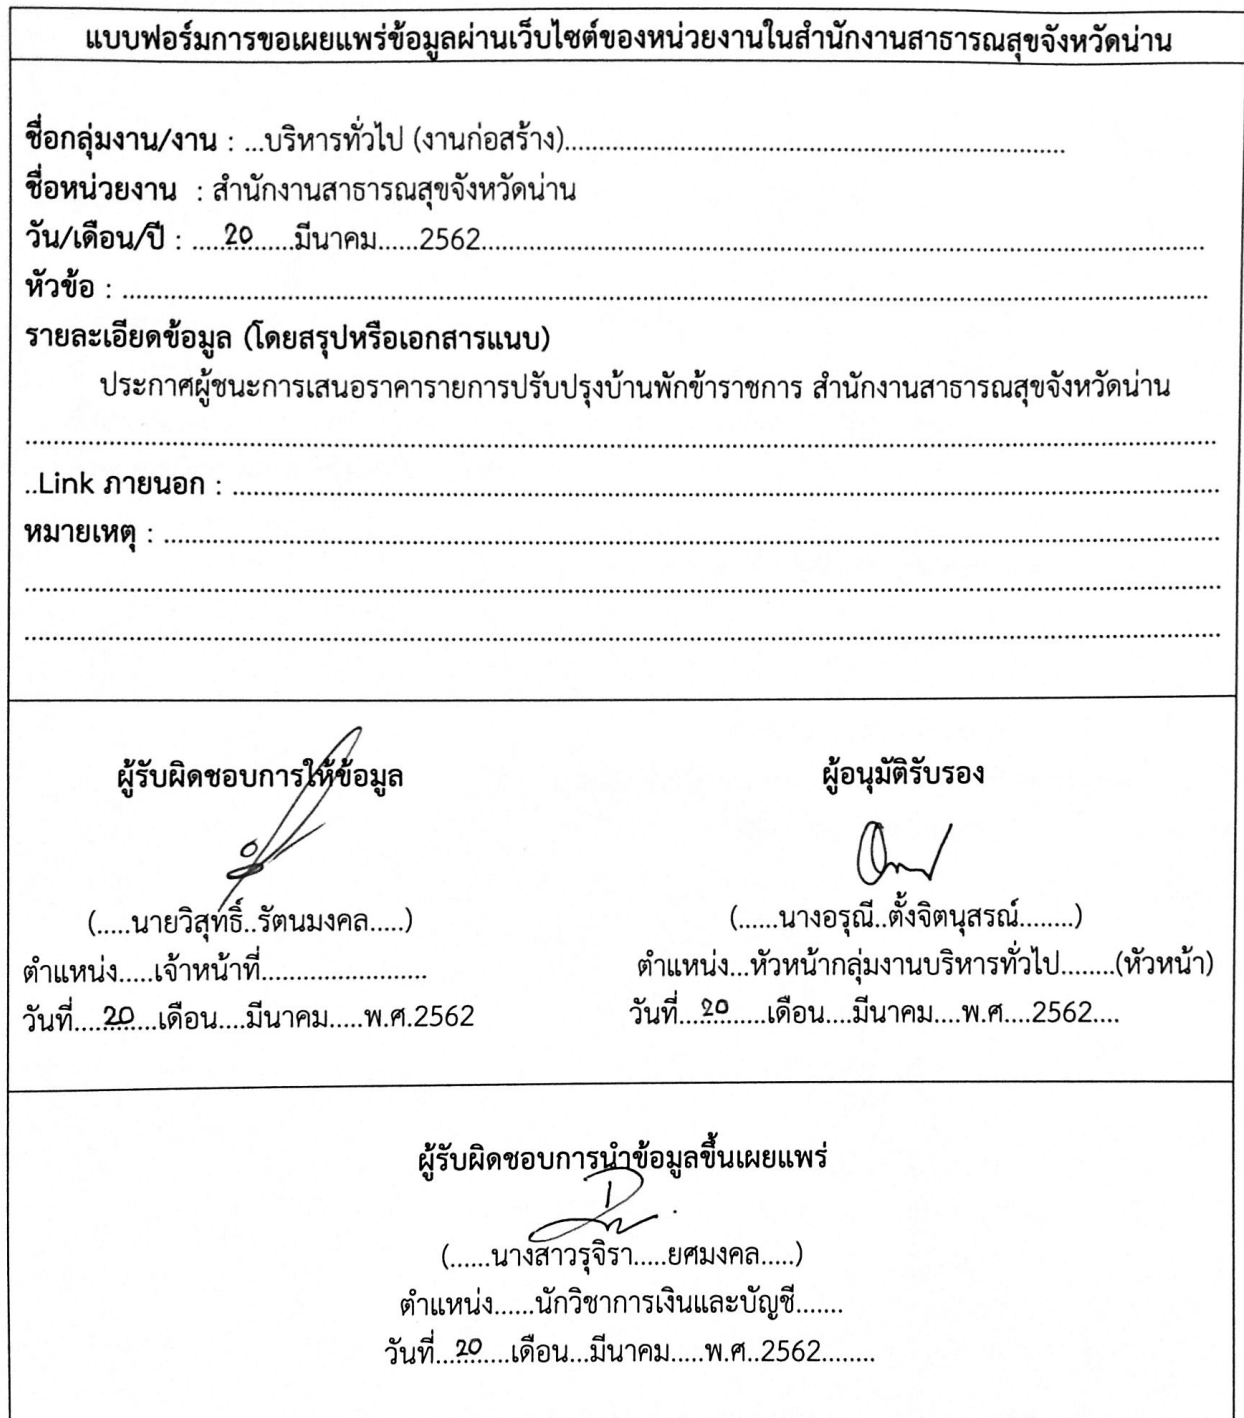 แบบฟอร์มการขอเผยแพร่ข้อมูลผ่านเว็บไซต์ของหน่วยงานในสำนักงานสาธารณสุขจังหวัดน่าน
ชื่อกลุ่มงาน/งาน : ...บริหารทั่วไป (งานก่อสร้าง)..........................................................................
ชื่อหน่วยงาน : สำนักงานสาธารณสุขจังหวัดน่าน
วัน/เดือน/ปี : .....20......มีนาคม......2562..........................................................................
หัวข้อ : ..........................................................................
รายละเอียดข้อมูล (โดยสรุปหรือเอกสารแนบ)
ประกาศผู้ชนะการเสนอราคารายการปรับปรุงบ้านพักข้าราชการ สำนักงานสาธารณสุขจังหวัดน่าน
..........................................................................
..Link ภายนอก : ..........................................................................
หมายเหตุ : ..........................................................................
..........................................................................
..........................................................................
ผู้รับผิดชอบการให้ข้อมูล ผู้อนุมัติรับรอง
(.....นายวิสุทธิ์..รัตนมงคล.....) (......นางอรุณี..ตั้งจิตนุสรณ์........)
ตำแหน่ง.....เจ้าหน้าที่........................ ตำแหน่ง...หัวหน้ากลุ่มงานบริหารทั่วไป........(หัวหน้า)
วันที่....20....เดือน....มีนาคม.....พ.ศ.2562 วันที่...20......เดือน....มีนาคม....พ.ศ....2562....
ผู้รับผิดชอบการนำข้อมูลขึ้นเผยแพร่
(......นางสาวรุจิรา.....ยศมงคล.....)
ตำแหน่ง......นักวิชาการเงินและบัญชี.......
วันที่...20....เดือน...มีนาคม.....พ.ศ..2562........